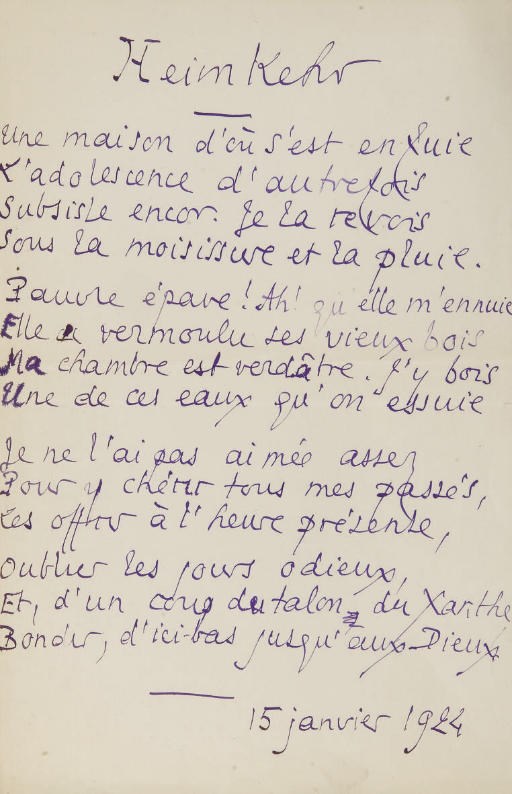 HeimKehr
Une maison d'où s'est enfuie
L'adolescence d'autrefois
Subsiste encor. Je la revois
Sous la moisissure et la pluie.
Pauvre épave! Ah! qu'elle m'ennuie
Elle a vermoulu ses vieux bois
Ma chambre est verdâtre. J'y bois
Une de ces eaux qu'on essuie
Je ne l'ai pas aimée assez
Pour y chérir tous mes passés,
Les offrir à l'heure présente,
Oublier les jours odieux,
Et, d'un coup du talon, du Xanthe
Bondir, d'ici-bas jusqu'aux Dieux
15 janvier 1924